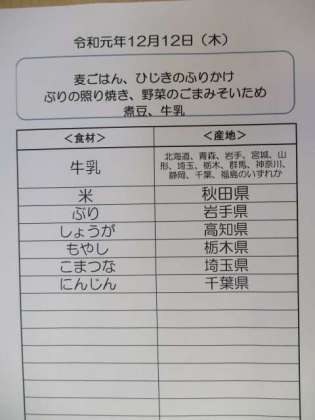 令和元年12月12日（木）
麦ごはん、ひじきのふりかけ
ぶりの照り焼き、野菜のごまみそいため
煮豆、牛乳
＜食材＞ ＜産地＞
牛乳 北海道、青森、岩手、宮城、山
形、埼玉、栃木、群馬、神奈川、
静岡、千葉、福島のいずれか
米 秋田県
ぶり 岩手県
しょうが 高知県
もやし 栃木県
こまつな 埼玉県
にんじん 千葉県